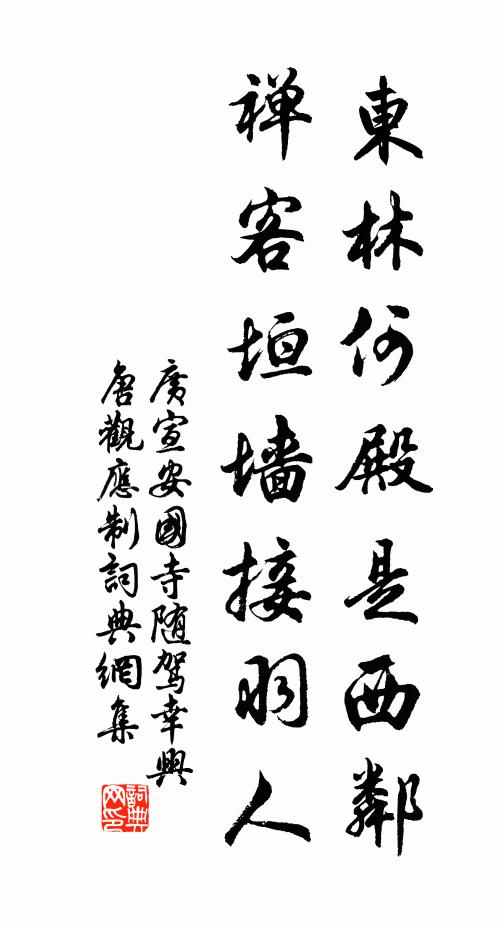 東林何殿是西鄰
禅客垣墙接羽人
廣宣安國寺随駕幸興
唐觀應制詞典網集
詞典网印